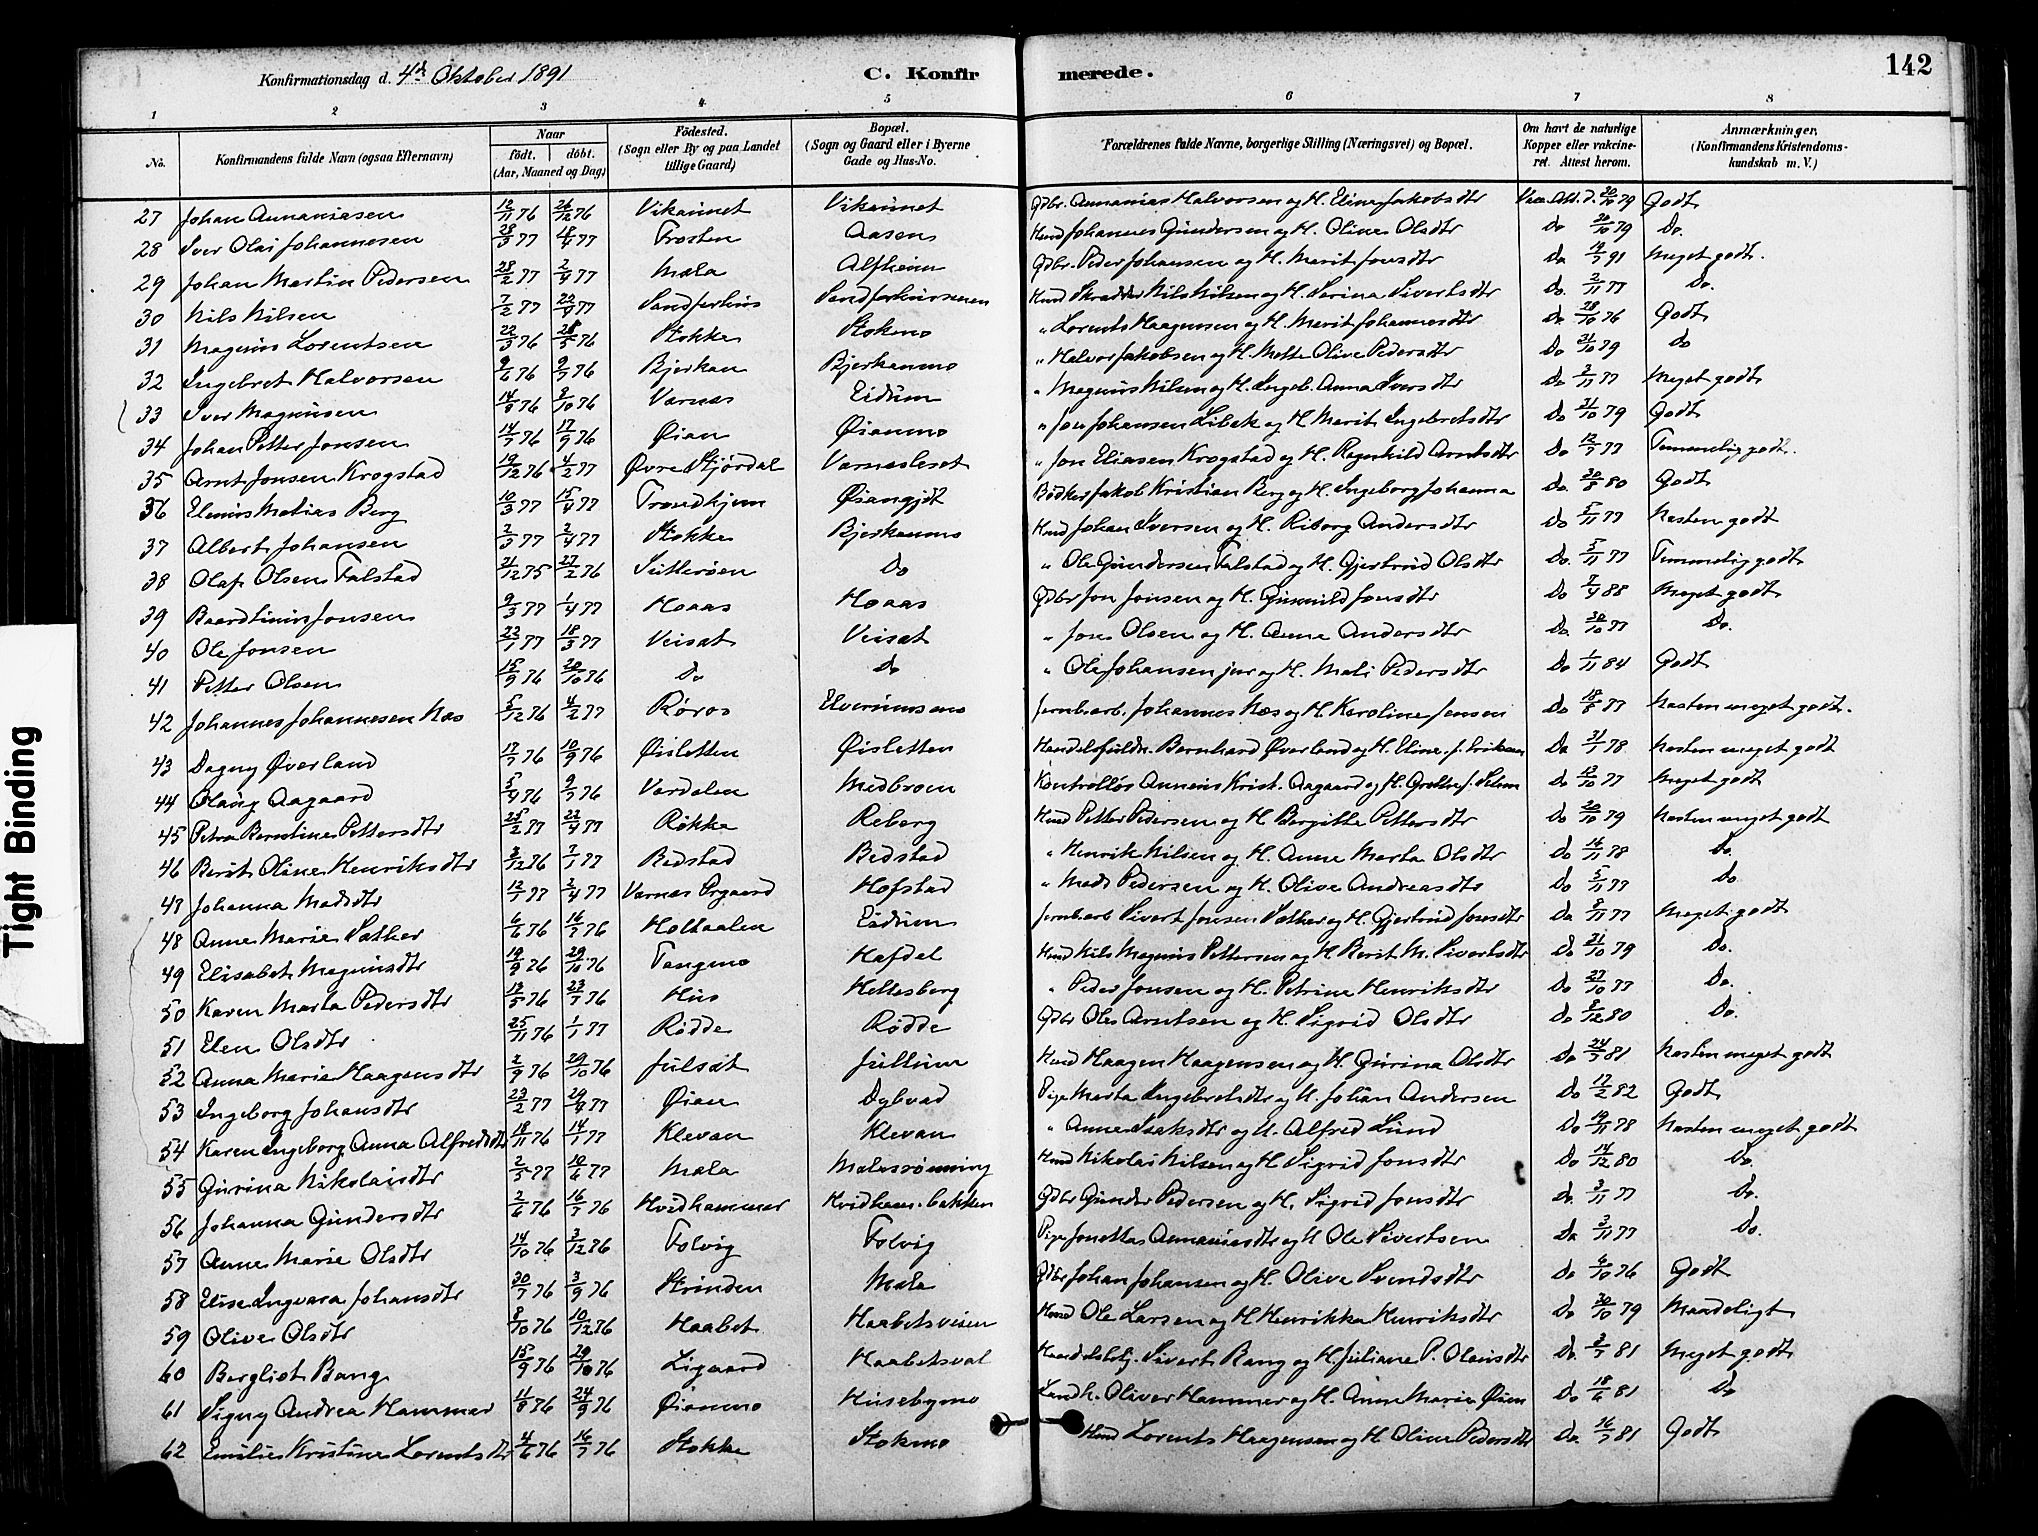 Konfirmationsdag d. 4de Oktober 1891 C. Konfirmerede. 142
1 2 3 4 5 6 7 8
No. Konfirmandens fulde Navn (ogsaa Efternavn) Naar født. døbt. (Aar, Maaned og Dag) Fødested. (Sogn eller By og paa Landet tillige Gaard) Bopæl. (Sogn og Gaard eller i Byerne Gade og Hus-No. Forældrenes fulde Navne, borgerlige Stilling (Næringsvei) og Bopæl. Om havt de naturlige Kopper eller vakcineret. Attest herom. Anmærkninger. (Konfirmandens Kristendomskundskab m. V.)
27 Johan Annaniasen 12/11 76 26/12 76 Vikaunet Vikaunet Gdbr. Annanias Halvorsen og H. Eline Jakobsdtr Vac. Att. d. 20/10 79 Godt
28 Iver Olai Johannesen 28/3 77 18/4 77 Frosten Aasen Husmd Johannes Gundersen og H. Oline Olsdtr Do 20/10 79 Do.
29 Johan Martin Pedersen 28/2 77 2/4 77 Mæla Alfheim Gdbr. Peder Johansen og H. Marit Jonsdtr Do 14/7 91 Meget godt.
30 Nils Nilsen 7/2 77 22/4 77 Sandferhus Husmd Skrædder Nils Nilsen og H. Serina Sivertsdtr Do. 2/11 77 Do.
31 Magnus Lorentsen 22/3 76 28/5 76 Stokke Stokmo " Lorents Haagensen og H. Marit Johannesdtr Do 28/10 76 Godt
32 Ingebret Halvorsen 9/6 76 9/7 76 Bjerkan Bjerkanmo " Halvor Jakobsen og H. Mette Olive Pedersdtr Do 21/10 79 do
33 Iver Magnusen 14/9 76 8/10 76 Værnes Eidum " Magnus Nilsen og H. Ingeb. Anna Iversdtr Do 2/11 77 Meget godt
34 Johan Petter Jonsen 14/7 76 17/9 76 Øian Øianmo " Jon Johansen Libek og H. Marit Ingebretsdtr Do 21/10 79 Godt
35 Arnt Jonsen Krogstad 19/12 76 4/2 77 Øvre Stjørdal Værnesleret " Jon Eliasen Krogstad og H. Ragnhild Arntsdtr Do 12/7 77 Temmelig godt.
36 Elenius Matias Berg 10/3 77 15/4 77 Trondhjem Øiangjdt Bødker Jakob Kristian Berg og H. Ingeborg Johanna Do. 20/8 80 Godt
37 Albert Johansen 2/3 77 2/4 77 Stokke Bjerkanmo Husmd Johan Iversen og H. Riborg Andersdtr Do 5/11 77 Næsten godt
38 Olaf Olsen Falstad 21/12 75 27/2 76 Sutterøen Do " Ole Gundersen Falstad og H. Gjertrud Olsdtr Do. 5/11 77 Temmelig godt
39 Baard Linius Jonsen 9/3 77 1/4 77 Hoaas Hoaas Gdbr Jon Jonsen og H. Gunnild Jonsdtr Do 7/9 88 Meget godt
40 Ole Jonsen 22/1 77 18/3 77 Veisæt Veisæt " Jon Olsen og H. Anne Andersdtr Do. 30/10 77 Do.
41 Petter Olsen 15/9 76 20/10 76 Do Do " Ole Johansen jur og H. Mali Pedersdtr Do 1/11 84 Godt
42 Johannes Johannesen Næs 5/12 76 4/2 77 Røros Jernbarb. Johannes Næs og H. Karoline Jensen Do 18/8 77 Næsten meget godt.
43 Dagny Øverland 17/7 76 10/9 76 Øisletten Øisletten Handelsfuldm. Bernhard Øverland og H. Eline f. Eriksen Do 31/7 78 Næsten meget godt
44 Olaug Aagaard 5/4 76 9/7 76 Værdalen Medbroen Kontrollør Annæus Krist. Aagaard og H. Grethe f. Selum Do 13/10 77 Meget godt
45 Petra Berntine Pettersdtr 25/2 77 22/4 77 Røkke Reberg Husmd Petter Pedersen og H. Bergitte Pettersdtr Do 20/10 79 Næsten meget godt
46 Berit Oline Henriksdtr 3/12 76 7/1 77 Bedstad Bedstad " Henrik Nilsen og H. Anne Marta Olsdtr Do 16/11 78 Do.
47 Johanna Madsdtr 12/1 77 2/4 77 Værnes Prgaard Hofstad " Mads Pedersen og H. Olive Andreasdtr Do 5/11 77 Do
48 Anne Marie Sæther 6/6 76 16/7 76 Holtaalen Eidum Jernbarb Sivert Jonsen Sæther og H. Gjertrud Jonsdtr Do 8/11 77 Meget godt
49 Elisabet Magnusdtr 19/9 76 29/10 76 Tangmo Hafdel Husmd Nils Magnus Pettersen og H Berit M. Sivertsdtr Do 21/10 79 Do.
50 Karen Marta Pedersdtr 12/5 76 23/7 76 Hus Hellesberg " Peder Jonsen og H. Petrine Henriksdtr Do 27/10 77 Do.
51 Elen Olsdtr 25/11 76 1/1 77 Rødde Rødde Gdbr Ole Arntsen og H. Sigrid Olsdtr Do 8/12 80 Do.
52 Anna Marie Haagensdtr 2/9 76 29/10 76 Julsæt Jullum Husmd Haagen Haagensen og H. Gurina Olsdtr Do 24/7 81 Næsten meget godt
53 Ingeborg Johansdtr 23/2 77 29/4 77 Øian Dybvad Pige Marta Ingebretsdtr og U. Johan Andersen Do 17/2 82 Godt
54 Karen Ingeborg Anna Alfredsdtr 18/11 76 14/1 77 Klevan Klevan " Anne Isaksdtr og U. Alfred Lund Do 19/11 78 Næsten meget godt
55 Gurina Nikolaisdtr 2/5 77 10/6 77 Mæla Mælesrønning Husmd Nikolai Nilsen og H Sigrid Jonsdtr Do 14/12 80 Do.
56 Johanna Gundersdtr 2/6 76 16/7 76 Hvidhammer Hvidham. bakken Gdbr Gunder Pedersen og H. Sigrid Jonsdtr Do. 3/11 77 Do.
57 Anne Marie Olsdtr 14/10 76 3/12 76 Folvig Folvig Pige Jonettas Annaniasdtr og U Ole Sivertsen Do 3/11 77 Do.
58 Elise Ingvara Johansdtr 30/7 76 3/9 76 Strinden Mæla Gdbr Johan Johansen og H. Olive Svendsdtr Do 6/10 76 Godt
59 Olive Olsdtr 8/10 76 10/12 76 Haabet Haabetsveien Husmd Ole Larsen og H Henrikka Henriksdtr Do 30/10 79 Maadeligt
60 Bergliot Bang 15/9 76 29/10 76 Ligaard Haabetsval Handelsbtj. Sivert Bang og H. Juliane P. Olausdtr Do. 3/7 81 Meget godt
61 Signy Andrea Hammer 11/8 76 24/9 76 Øianmo Husebymo Landh. Oliver Hammer og H. Anne Marie Øien Do 18/6 81 Do
62 Emilie Kristine Lorentsdtr 4/6 76 16/7 76 Stokke Stokmo Husmd Lorents Haagensen og H Oline Pedersdtr Do. 16/7 81 Godt
Tight Binding